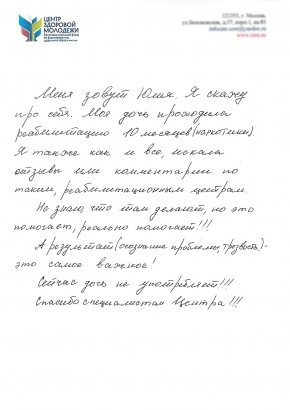 ЦЕНТР
ЗДОРОВОЙ
МОЛОДЕЖИ
121353, г. Москва,
Меня зовут Юлия. Я скажу
про себя. Моя дочь проходила
реабилитацию 10 месяцев (наркотики).
Я также как и все, искала
отзывы или комментарии по
таким, реабилитационным центрам.
Не знаю, что там делают, но это
помогает, реально помогает!!!
А результат (осознание проблемы, трезвость) -
это самое важное!
Сейчас дочь не употребляет!!!
Спасибо специалистам Центра!!!